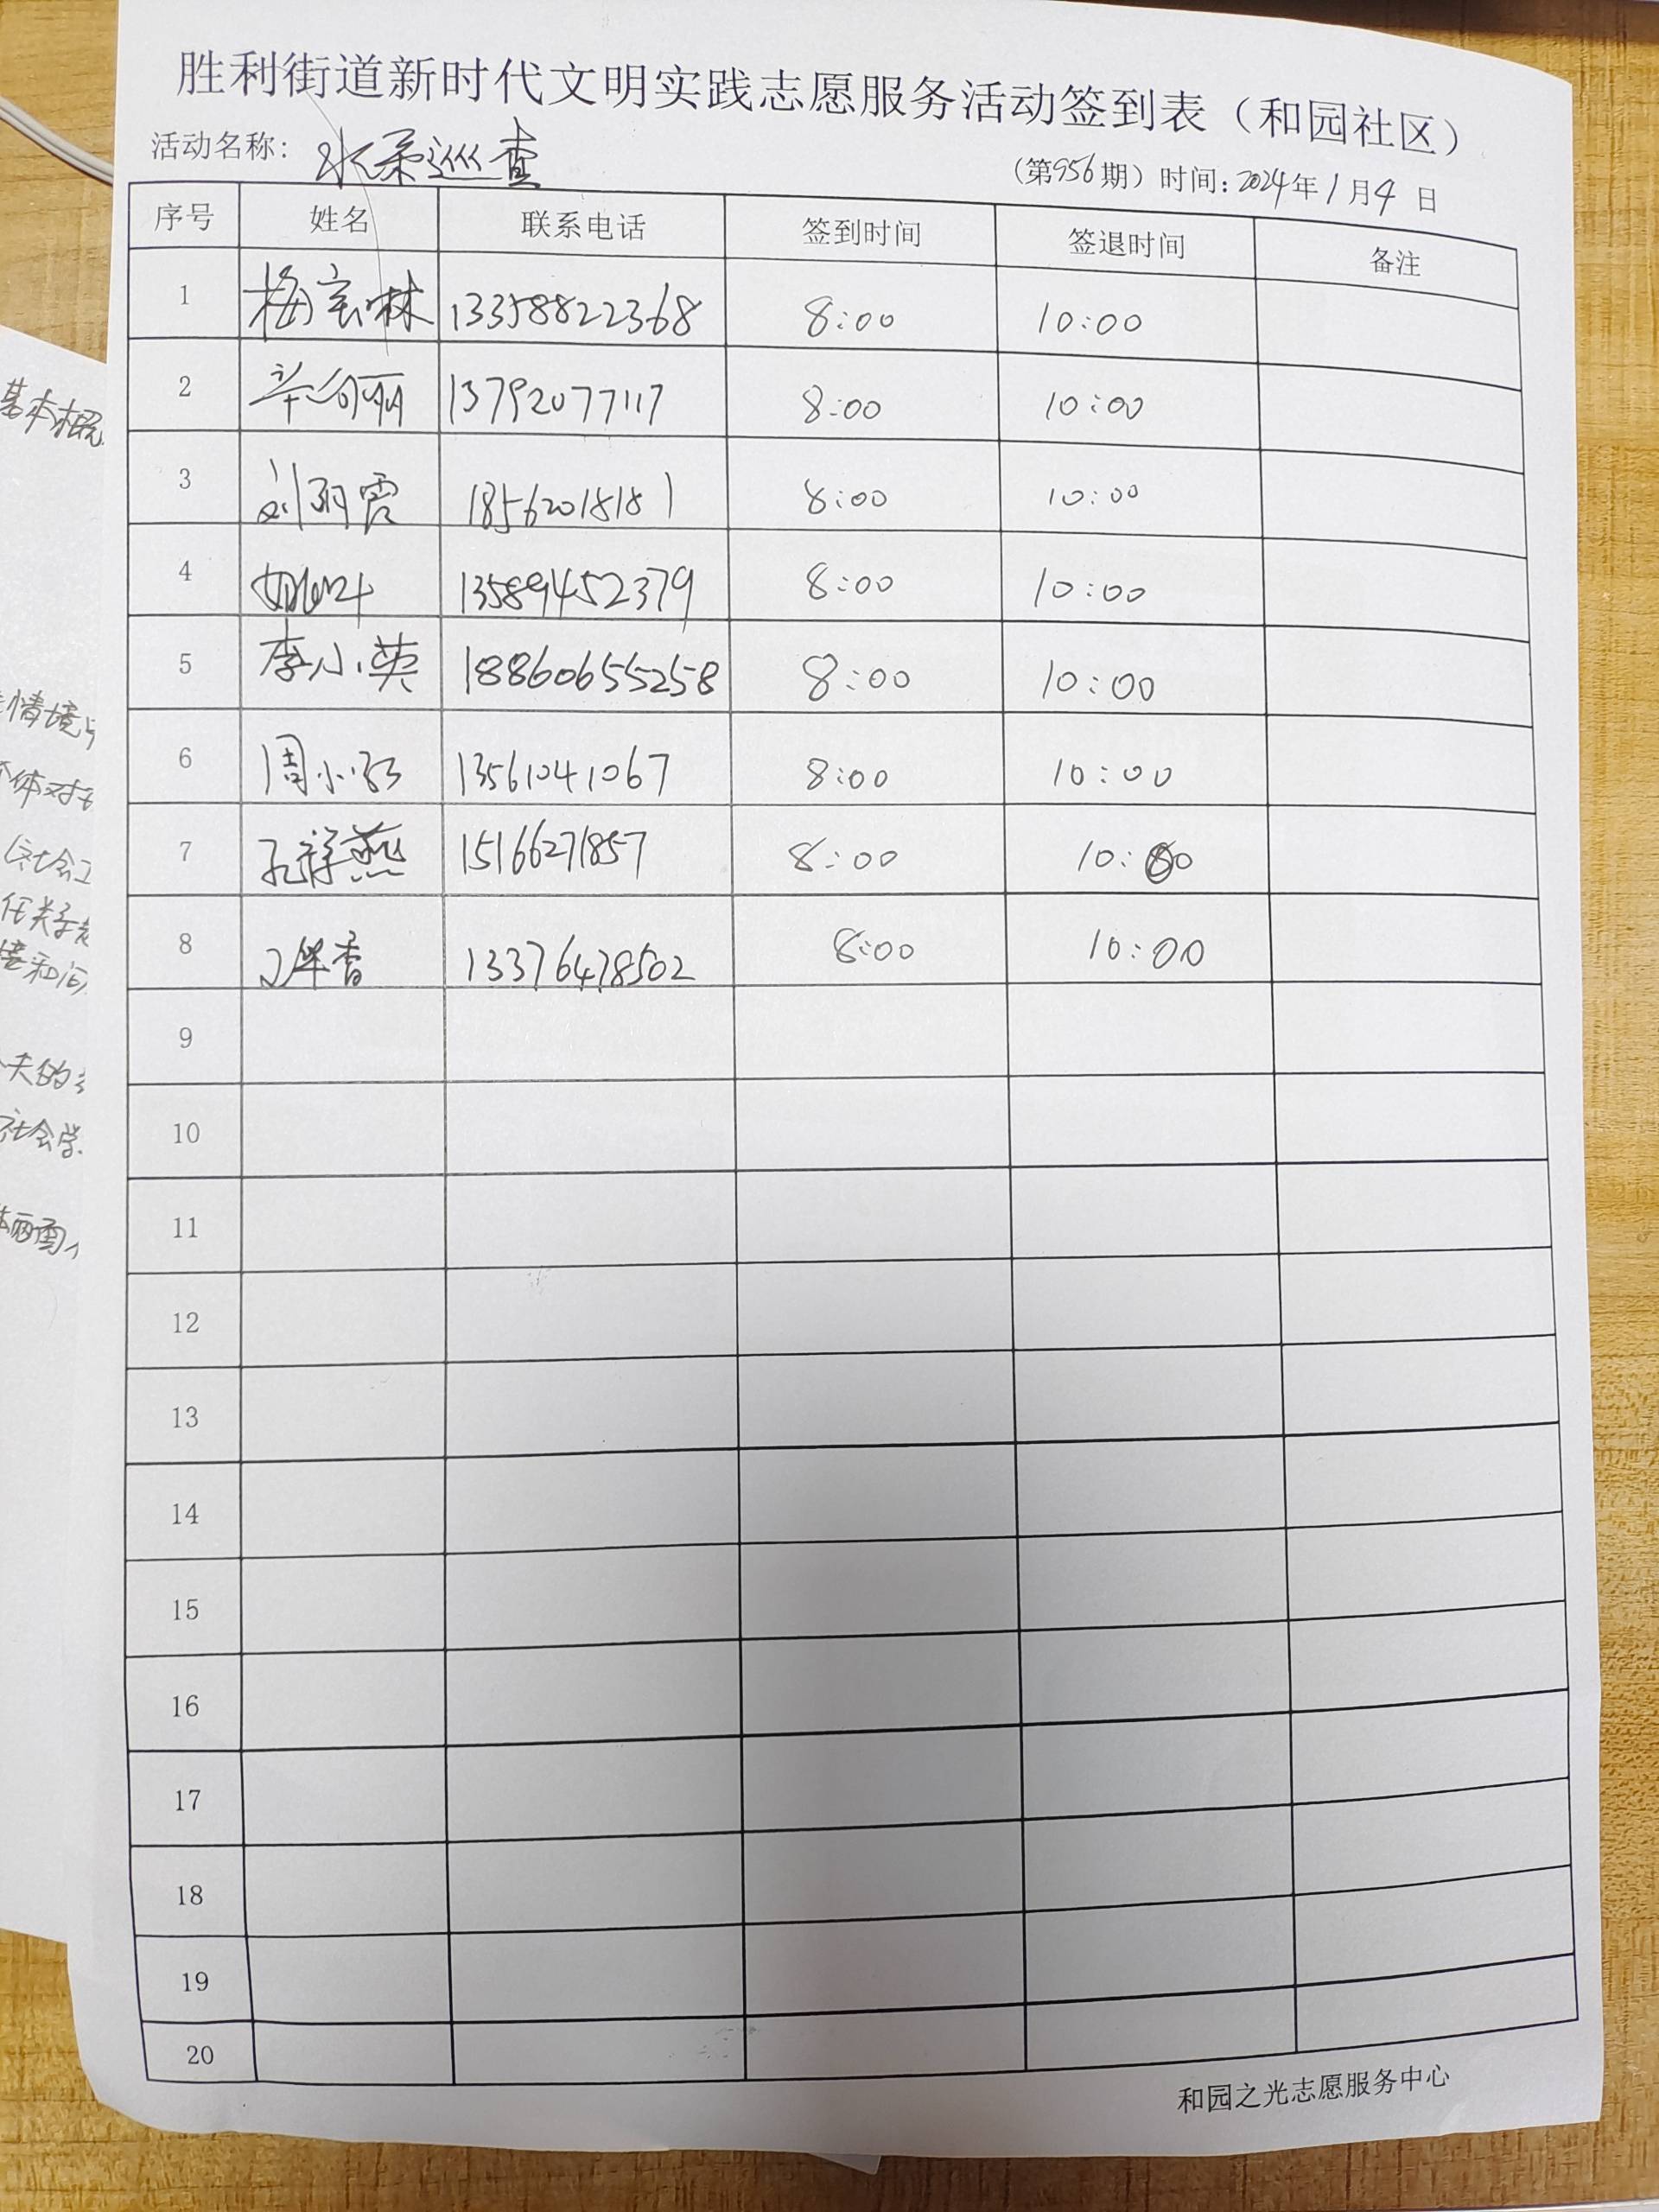 胜利街道新时代文明实践志愿服务活动签到表（和园社区）
活动名称：水系巡查
（第956期）时间：2024年1月4日
序号 姓名 联系电话 签到时间 签退时间 备注
1 梅宝琳 13358822368 8:00 10:00
2 13792077117 8:00 10:00
3 刘丽霞 18562018181 8:00 10:00
4 13589452379 8:00 10:00
5 李小英 188606555258 8:00 10:00
6 周小红 13561041067 8:00 10:00
7 孔祥燕 15166271857 8:00 10:00
8 香 13376478502 8:00 10:00
9
10
11
12
13
14
15
16
17
18
19
20
和园之光志愿服务中心
基本概
情境与
体对
社会工
任关系
接和间
夫的
社会学
两面